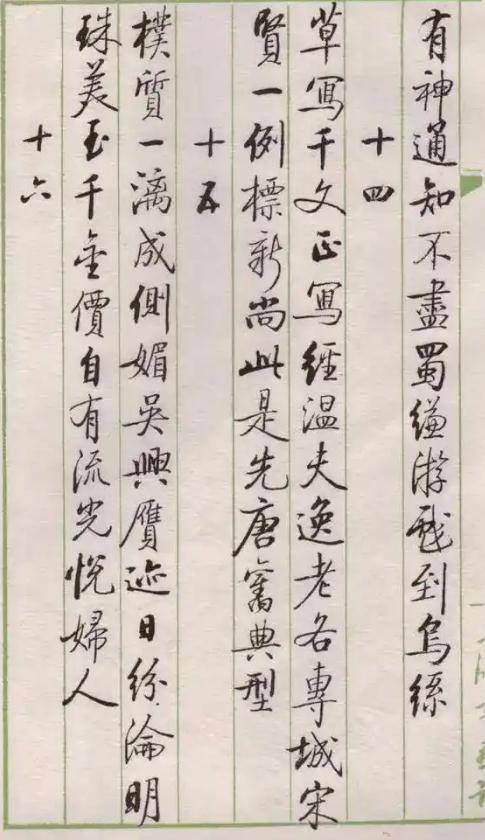 有神通知不盡蜀縑游戲到烏絲
十四
草寫千文正寫經温夫逸老各專城宋
賢一例標新尚此是先唐舊典型
十五
樸質一漓成側媚吳興贗迹日紛淪明
珠美玉千金價自有流光悅婦人
十六